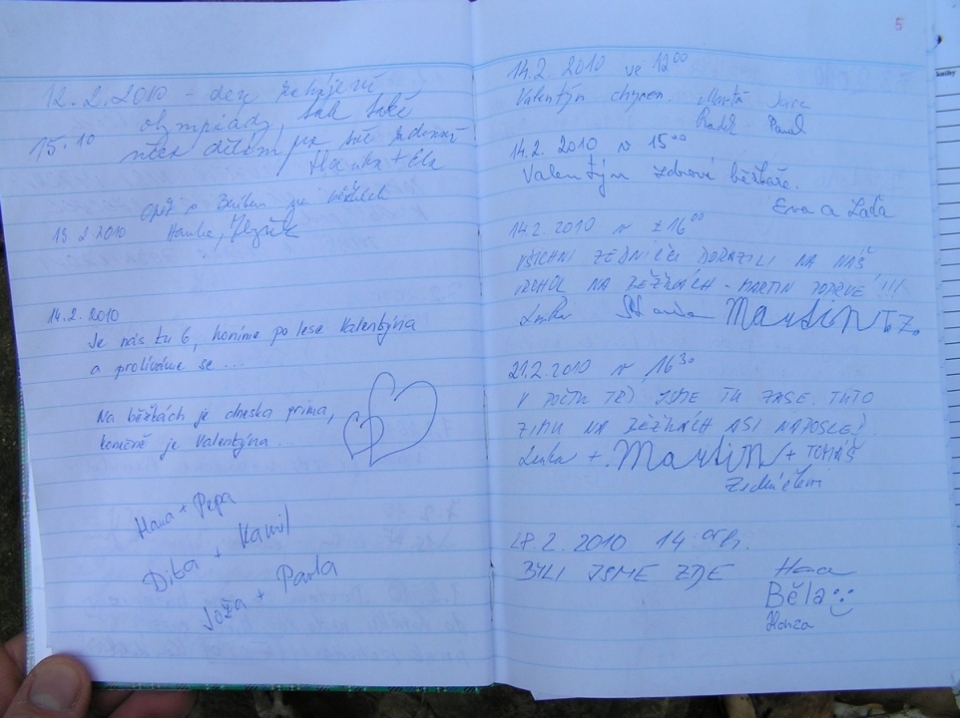 12.2.2010 - den zahájení
olympiády, tak také
15.10 něco dětem
Hanka + Ela
Opět s na běžkách
13.2.2010 Hanka,
14.2.2010
Je nás tu 6, honíme po lese Valentýna
a prolíváme se ...
Na běžkách je dneska prima,
konečně je Valentýna...
Hana + Pepa
Dita + Kamil
Joža + Pavla
5
14.2. 2010 ve 12⁰⁰
Valentýn chycen. Marta
Radek Pavel
14.2. 2010 v 15⁰⁰
Valentýn zdraví běžkaře.
Eva a Laďa
14.2. 2010 v ± 16⁰⁰
VŠICHNI ZEDNÍČCI DORAZILI NA NÁŠ
VRCHOL NA BĚŽKÁCH - MARTIN POPRVÉ !!!
Lenka Standa Martin T.Z.
21.2. 2010 v 16³⁰
V POČTU TŘÍ JSME TU ZASE. TUTO
ZIMU NA BĚŽKÁCH ASI NAPOSLED.
Lenka + Martin + TOMÁŠ
Zedníčkovi
28.2. 2010 14
BYLI JSME ZDE Hana
Běla
Honza